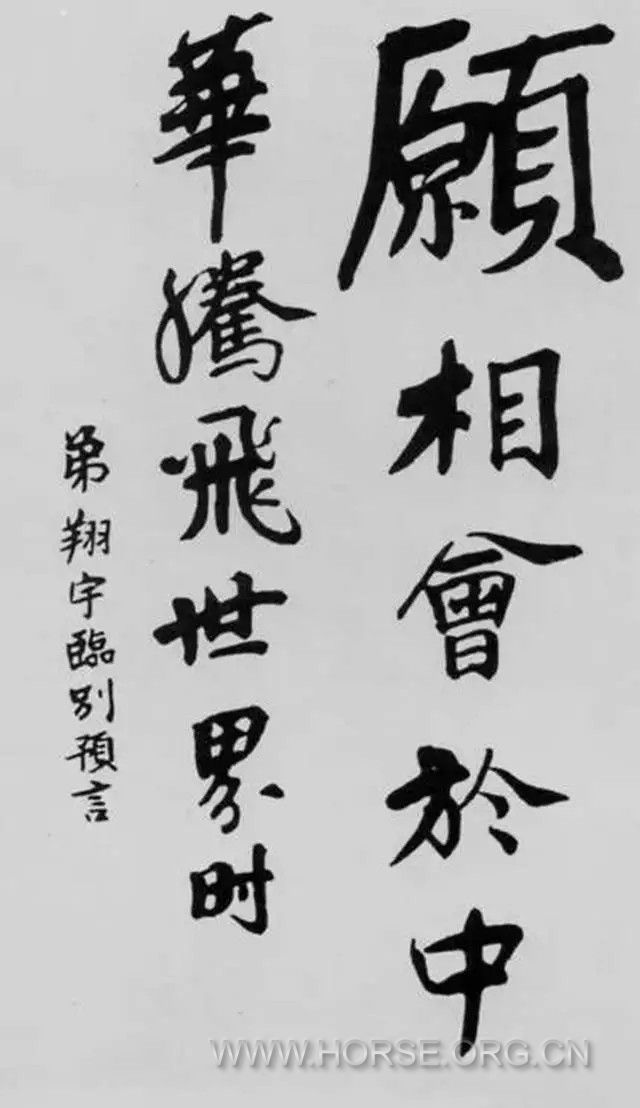 願相會於中
華騰飛世界时
弟翔宇臨別預言
WWW.HORSE.ORG.CN